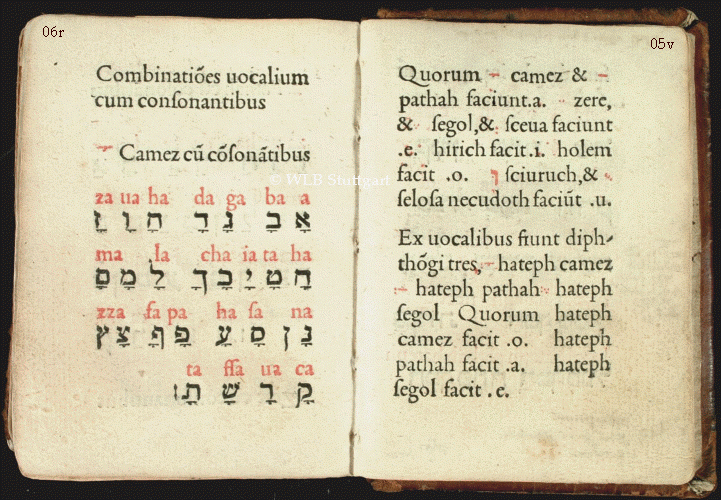 05v
Quorum camez &
pathah faciunt.a. zere,
& ſegol,& ſceua faciunt
.e. hirich facit.i. holem
facit .o. ו ſciuruch,&
ſeloſa necudoth faciūt .u.
Ex uocalibus fiunt diph-
thōgi tres, hateph camez
hateph pathah hateph
ſegol Quorum hateph
camez facit .o. hateph
pathah facit .a. hateph
ſegol facit .e.
06r
Combinatiões uocalium
cum conſonantibus
Camez cū cōſonātibus
za ua ha da ga ba a
אָ בָ גָ דָ הָ וָ זָ
ma la cha ia ta ha
חָ טָ יָ כָ ךָ לָ מָ םָ
zza fa pa ha ſa na
נָ ןָ סָ עָ פָ ףָ צָ ץָ
ta ſſa ua ca
קָ רָ שָ תָ׃
© WLB Stuttgart